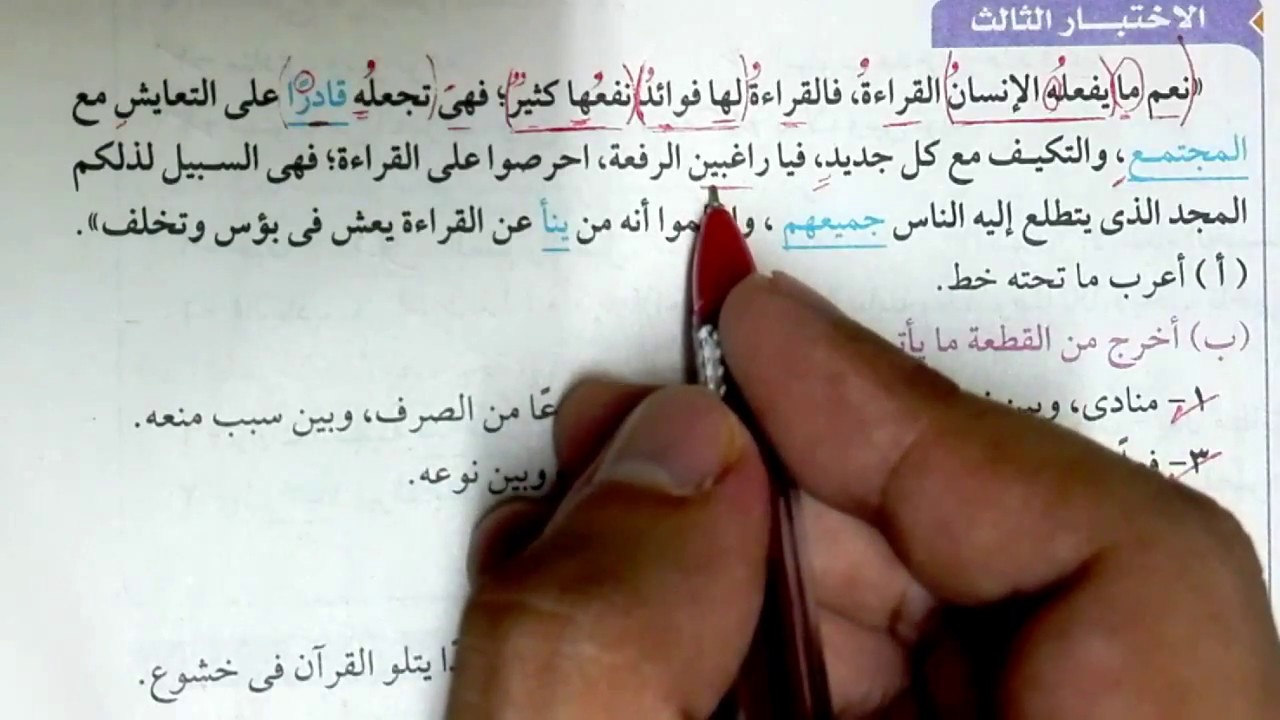 الاختبار الثالث
«نعم ما يفعلُه الإنسانُ القراءةُ، فالقراءةُ لها فوائدُ نفعُها كثيرٌ؛ فهىَ تجعلُه قادرًا على التعايشِ مع
المجتمـعِ، والتكيـف مع كل جديدٍ، فيا راغبين الرفعة، احرصوا على القراءة؛ فهى السـبيل لذلكم
المجد الذى يتطلع إليه الناس جميعهم ، أنه من ينأ عن القراءة يعش فى بؤس وتخلف».
(أ) أعرب ما تحته خط.
(ب) أخرج من القطعة ما
١- منادى، من الصرف، وبين سبب منعه.
٣- وبين نوعه.
يتلو القرآن فى خشوع.